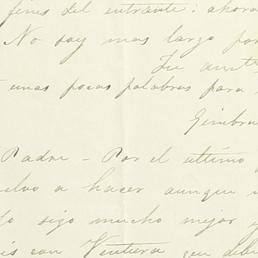 fines del entrante: ahora
No soy mas largo por
Tu am
unas pocas palabras para
Ginebra
Padre - Por el ultimo
vuelvo a hacer aunque
sigo mucho mejor y
con Ventura que